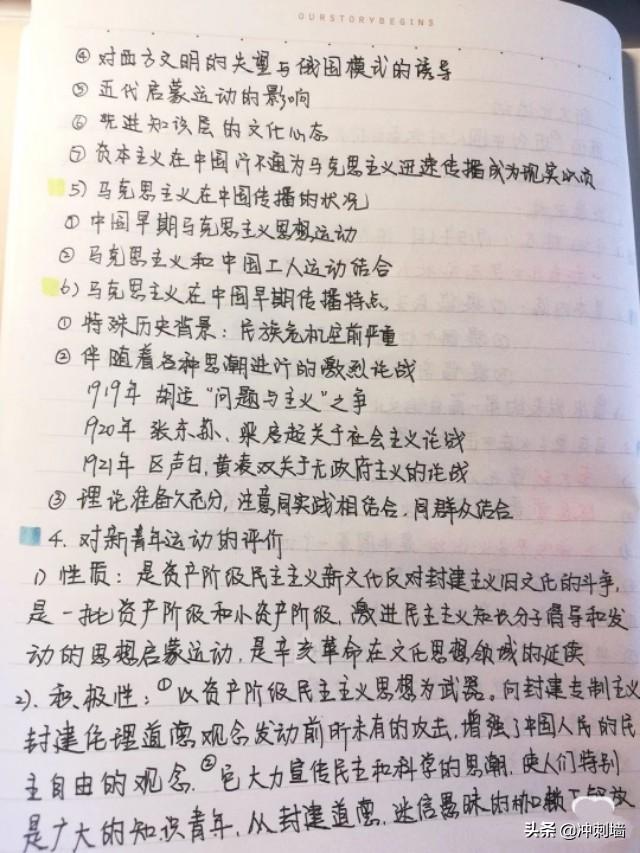 OURSTORYBEGINS
④ 对西方文明的失望与俄国模式的诱导
⑤ 近代启蒙运动的影响
⑥ 先进知识层的文化心态
⑦ 资本主义在中国行不通为马克思主义迅速传播成为现实必须
5) 马克思主义在中国传播的状况
① 中国早期马克思主义思想运动
② 马克思主义和中国工人运动结合
6) 马克思主义在中国早期传播特点
① 特殊历史背景：民族危机空前严重
② 伴随着各种思潮进行的激烈论战
1919年 胡适“问题与主义”之争
1920年 张东荪、梁启超关于社会主义论战
1921年 区声白，黄凌双关于无政府主义的论战
③ 理论准备欠充分，注意同实践相结合，同群众结合
4. 对新青年运动的评价
1) 性质：是资产阶级民主主义新文化反对封建主义旧文化的斗争，
是一批资产阶级和小资产阶级，激进民主主义知识分子倡导和发
动的思想启蒙运动，是辛亥革命在文化思想领域的延续
2). 积极性：①以资产阶级民主主义思想为武器。向封建专制主义
封建伦理道德观念发动前所未有的攻击，增强了中国人民的民
主自由的观念。②它大力宣传民主和科学的思潮，使人们特别
是广大的知识青年，从封建道德，迷信愚昧的枷锁下解放
头条 @冲刺墙